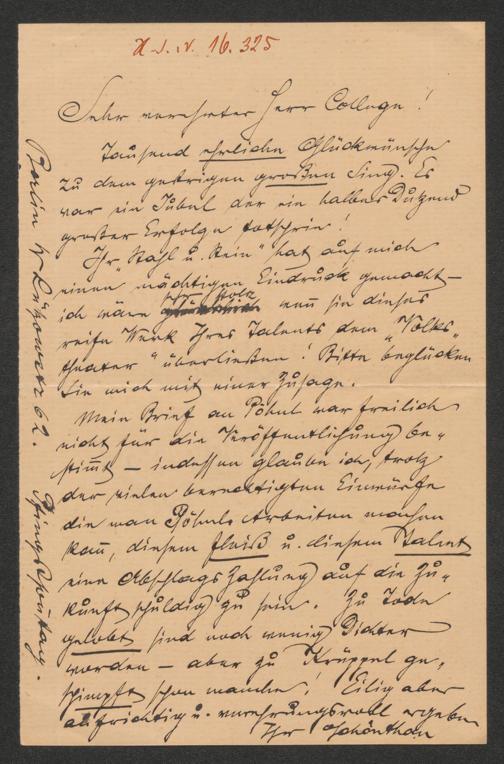 H.I.N. 16.325
Sehr verehrter Herr College!
Tausend ehrliche Glückwünsche
zu dem gestrigen großen Sieg. Es
war ein Jubel der ein halbes Dutzend
großer Erfolge totschrie!
Ihr „Stahl u. Stein" hat auf mich
einen mächtigen Eindruck gemacht –
ich wäre sehr stolz wenn sie dieses
reife Werk Ihres Talents dem „Volks-
theater" überließen! Bitte beglücken
Sie mich mit einer Zusage.
Mein Brief an Pöhnl war freilich
nicht für die Veröffentlichung be-
stimmt – indessen glaube ich, trotz
der vielen berechtigten Einwürfe
die man Pöhnls Arbeiten machen
kann, diesem Fleiß u. diesem Talent
eine Abschlagszahlung auf die Zu-
kunft schuldig zu sein. Zu Tode
gelobt sind noch wenig Dichter
worden – aber zu Krüppel ge-
schimpft schon manche! Eilig aber
aufrichtig u. verehrungsvoll ergeben
Ihr Schönthan
Berlin W Lützowstr 62. Pfingstsonntag.